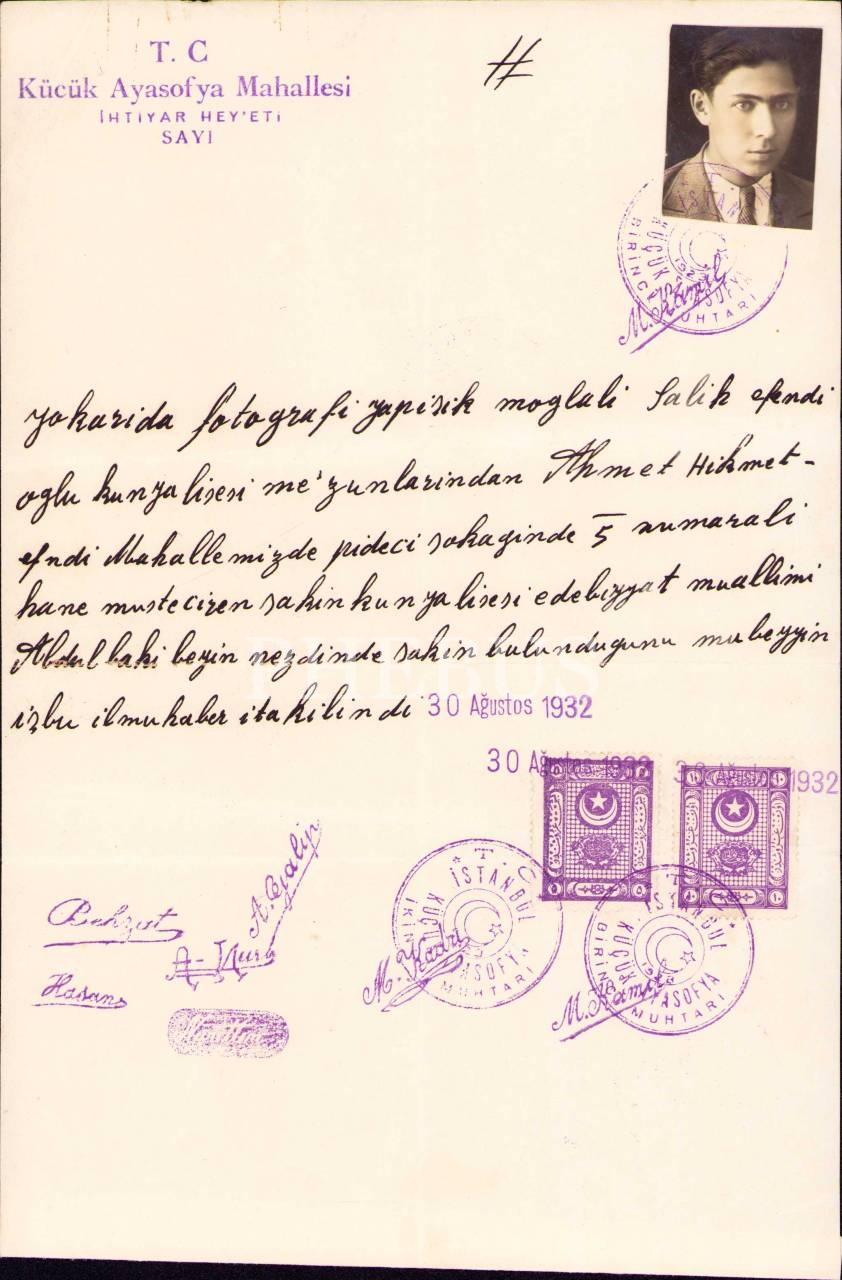 T. C
Küçük Ayasofya Mahallesi
İHTİYAR HEY'ETİ
SAYI
#
T. C.
İSTANBUL
KÜÇÜK AYASOFYA
BİRİNCİ MUHTARI
M. Kâmil
yokarida fotografi yapisik moglali Salih efendi
oglu kunya lisesi me'zunlarindan Ahmet Hikmet-
efndi Mahallemizde pideci sokaginde 5 numarali
hane musteciren sakin kunya lisesi edebiyyat muallimi
Abdulbaki beyin nezdinde sakin bulundugunu mubeyyin
izbu ilmuhaber ita kilindi 30 Ağustos 1932
PHEBUS
30 Ağustos 1932 30 Ağustos 1932
Behzat
A. Galip
A-Nuri
Hasan
T. C.
İSTANBUL
KÜÇÜK AYASOFYA
İKİNCİ MUHTARI
M. Kadri
T. C.
İSTANBUL
KÜÇÜK AYASOFYA
BİRİNCİ MUHTARI
M. Kâmil